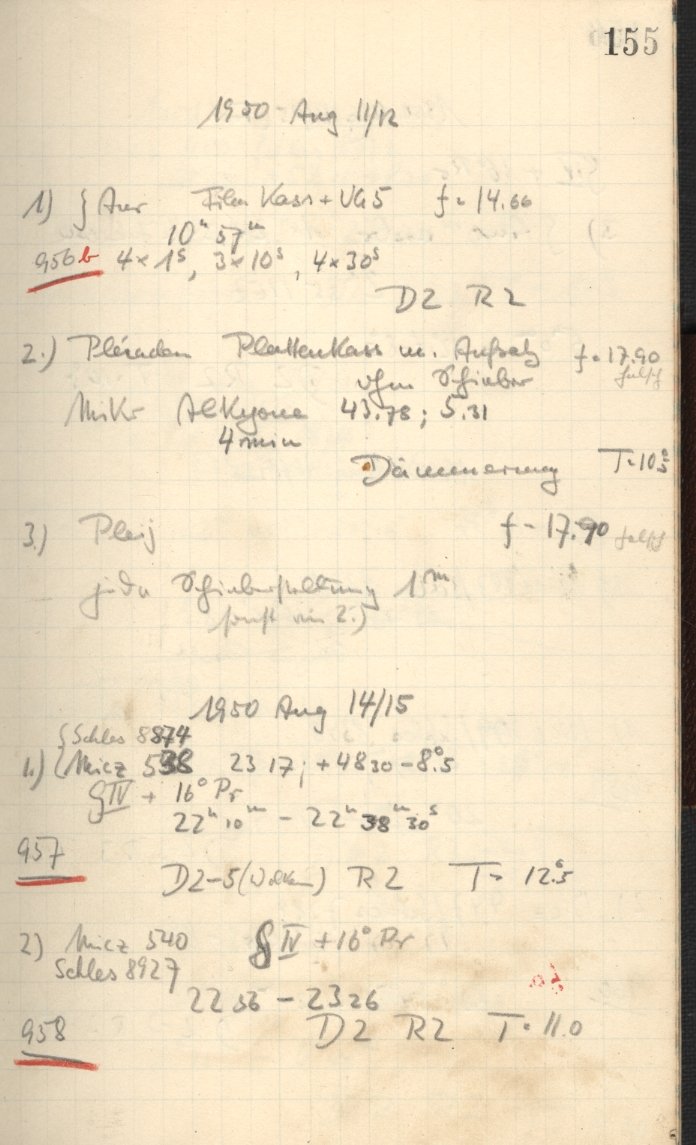 155
1950 Aug 11/12
1) ζ Aur Film Kass + VG5 f = 14.66
10h 57m
956b 4 x 1s, 3 x 10s, 4 x 30s
D2 R2
2.) Plejaden Plattenkass m. Aufsatz f = 17.90
ohne Schieber falsch
Mikr Alkyone 43.78; 5.31
4 min
Dämmerung T = 10.5
3.) Plej f = 17.90 falsch
jede Schieberstellung 1m
sonst wie 2.)
1950 Aug 14/15
{Schles 8874
1.) Micz 538 23 17; +48 30 - 8°.5
IV + 16° Pr
22h 10m - 22h 38m 30s
957
D2-5 (Wolken) R2 T = 12.5
2) Micz 540 IV + 16° Pr
Schles 8927
22 56 - 23 26
958 D2 R2 T = 11.0